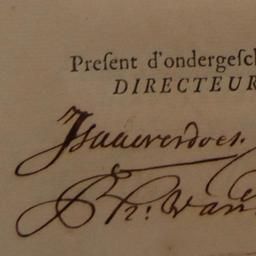 Preſent d'ondergeſch
DIRECTEUR
Isaacverdoes.
Ph: Van